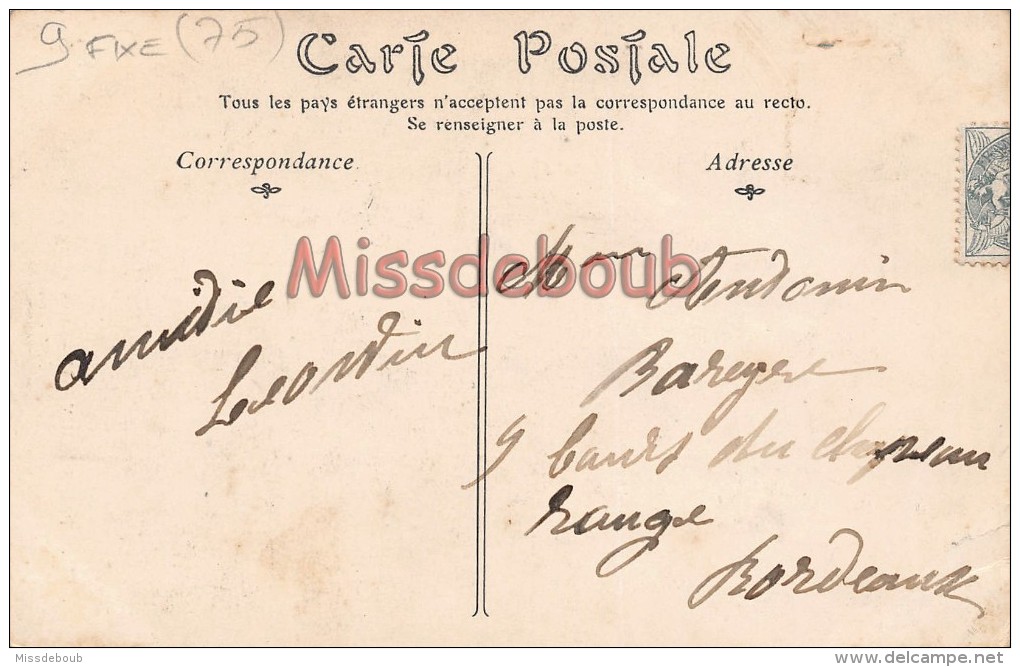 9 FIXE (75)
Carte Postale
Tous les pays étrangers n'acceptent pas la correspondance au recto.
Se renseigner à la poste.
Correspondance
Adresse
Missdeboub
amidie
Leontin
Mme
Bareyre
9 Cours du chapeau
rouge
Bordeaux
Missdeboub
delcampe.net